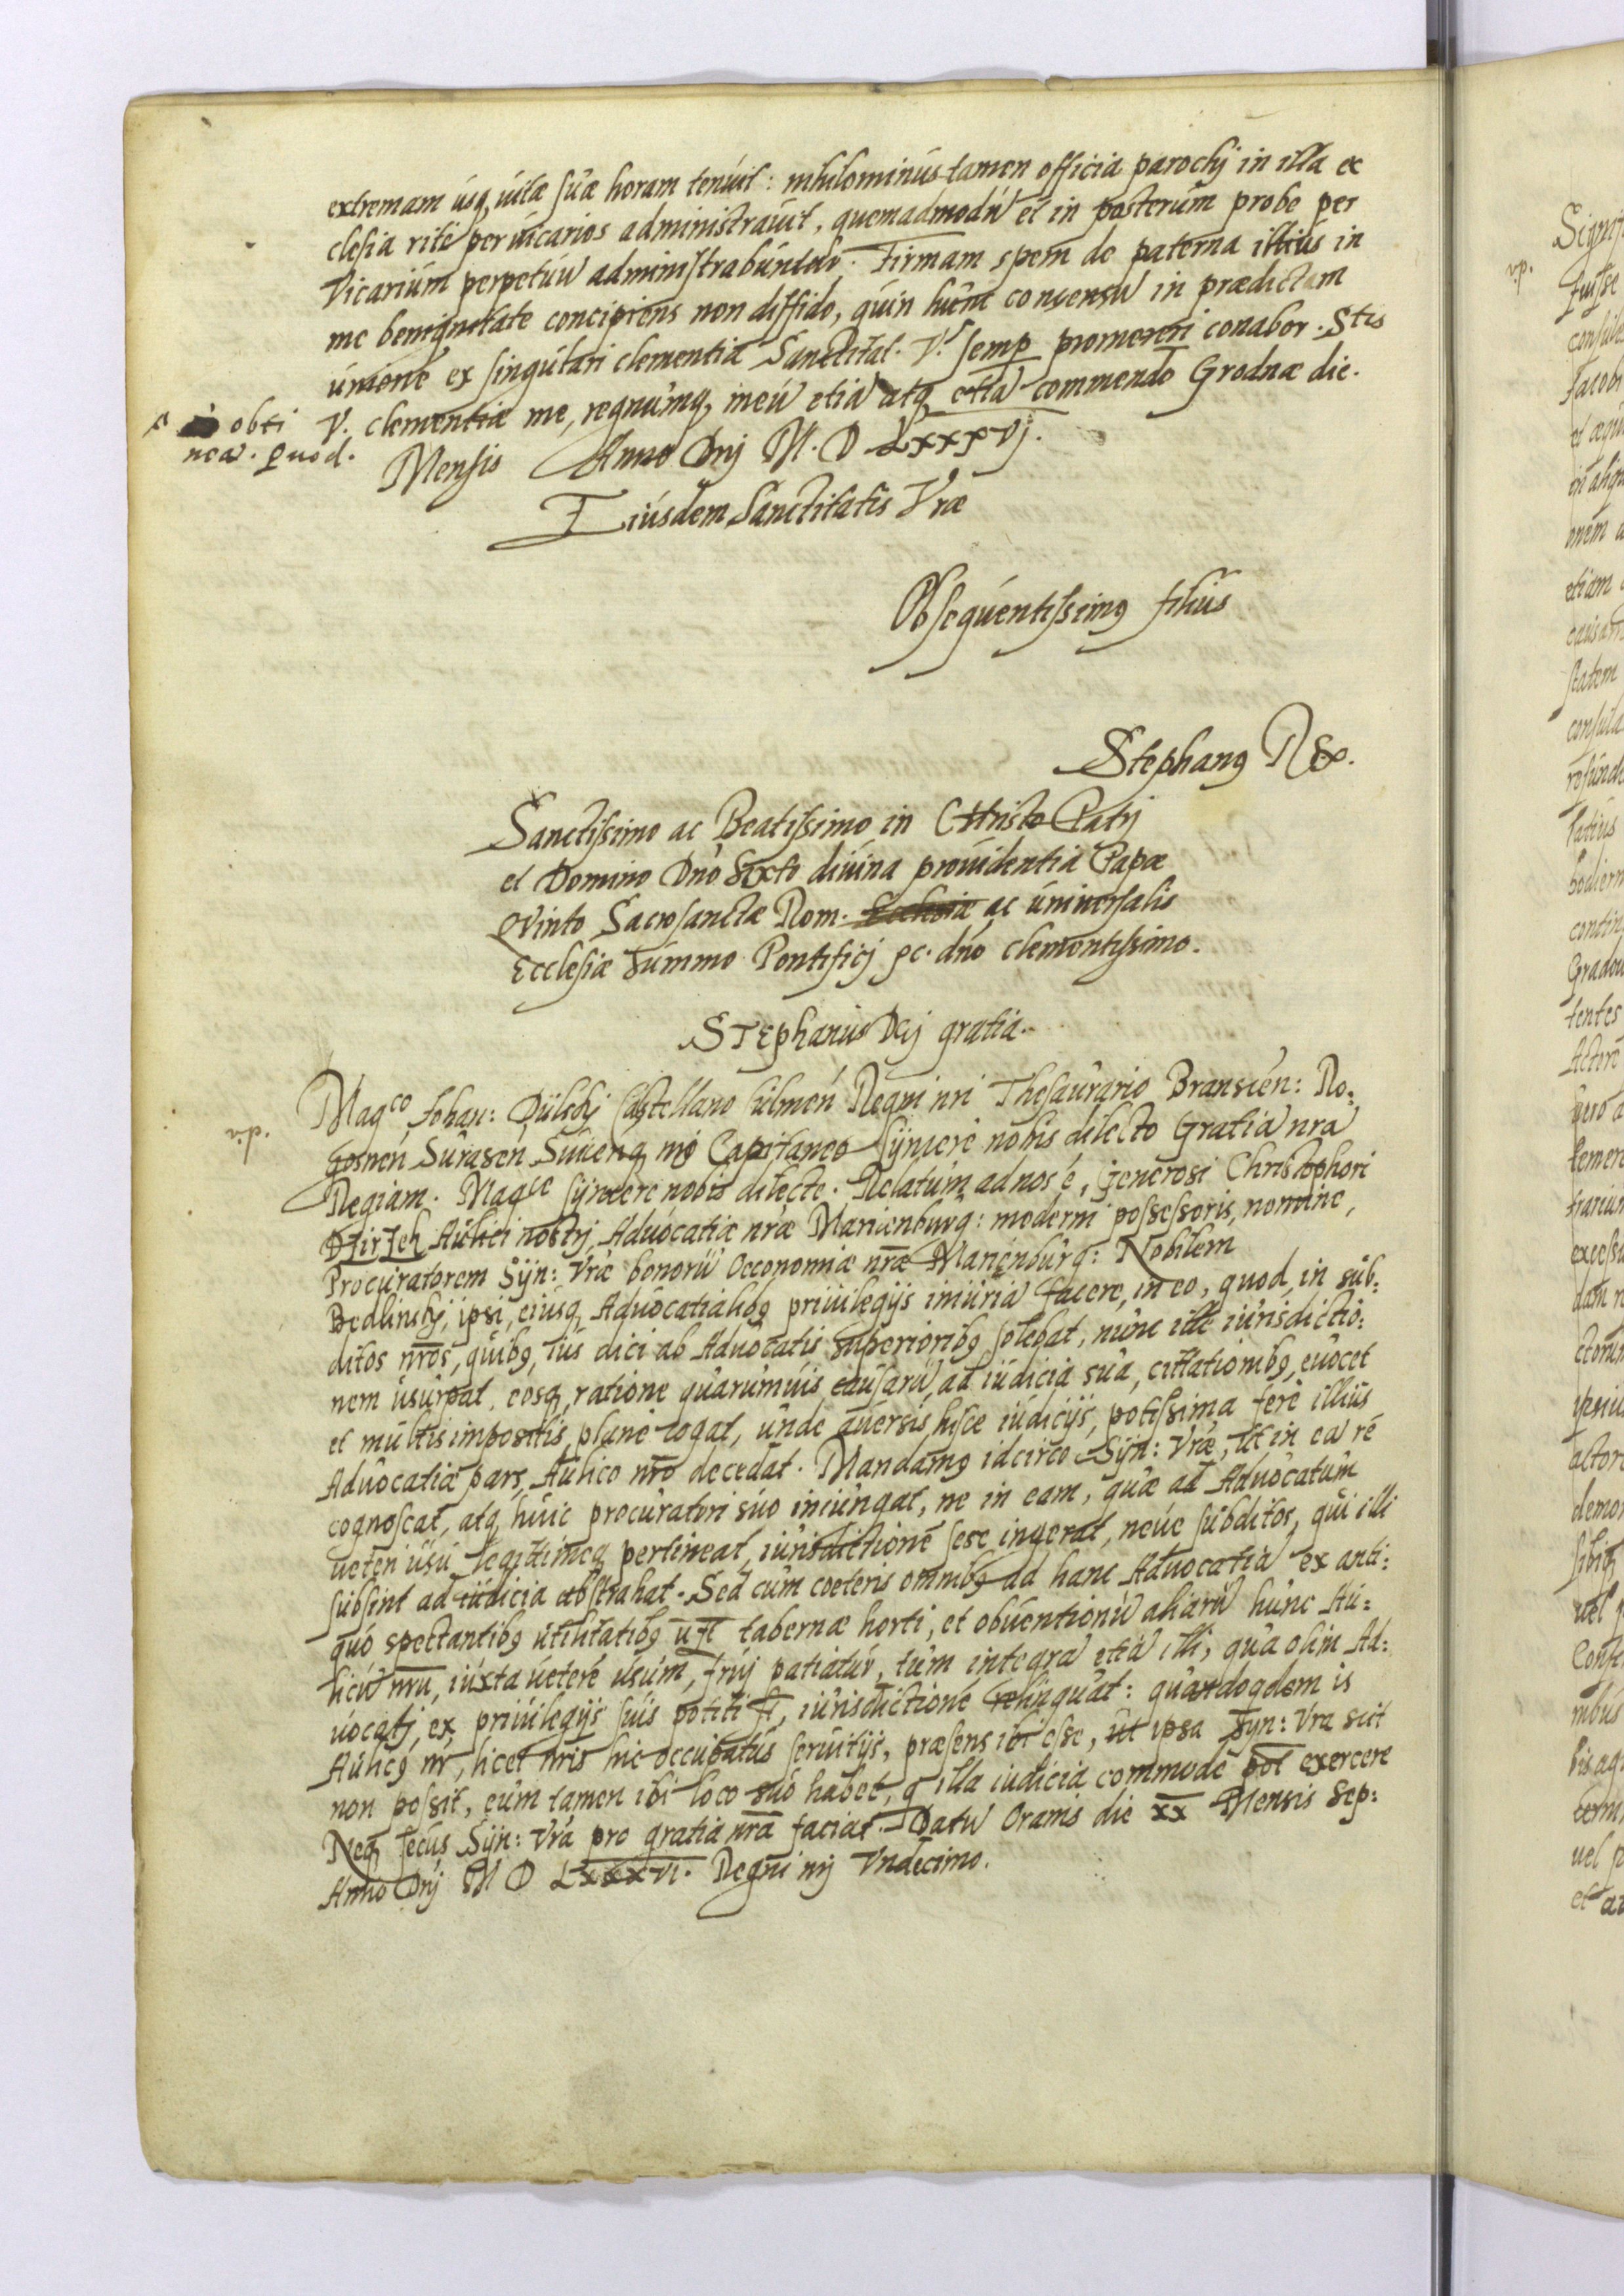 extremam usq, vitæ suæ horam tenuit: nihilominus tamen officia parochj in illa ec
clesia rite per vicarios administrauit, quemadmodū et in posterum probe per
Vicarium perpetuū administrabuntur. Firmam spem de paterna illius in
me benignitate concipiens non diffido, quin hunc consensū in prædictam
unione ex singulari clementia Sanctitat. V. semp promereri conabor. Stis
obti V. clementiæ me, regnumq, meū etiā atq, etiā commendo Grodnæ die.
nea. Quod. Mensis Anno Dnj M. D LXXXVj.
Eiusdem Sanctitatis Vræ
Obsequentissimꝯ filius
Stephanꝯ Rex.
Sanctissimo ac Beatissimo in Christo Patrj
et Domino Dnō Sixto diuina prouidentia Papæ
Qvinto Sacrosanctæ Rom. Ecclesiæ ac uniuersalis
Ecclesiæ Summo Pontificj &c. dnō clementissimo.
Stephanus Dej gratia.
Magco Johan: Dulskj Castellano Culmeń Regni nrī Thesaurario Bransceń: Ro:
gosneń Suraseń Capitaneo synцere nobis dilecto Gratiā nrā
Regiam. Magce syncere nobis dilecte. Relatum ad nos ē, Generosi Christophori
Dzirzek Aulici nostrj, Aduocatiæ nræ Marienburg: moderni possessoris, nomine,
Procuratorem Syn: Vræ bonorū Oeconomiæ nræ Marienburg: Nobilem
Bedlinskj, ipsi, eiusq, Aduocatialibꝯ priuilegijs iniuriā facere, in eo, quod, in sub:
ditos nrōs, quibꝯ, ius dici ab Aduocatis superioribꝯ solebat, nunc ille iurisdictio:
nem usurpat, eosq, ratione quarumuis causarū, ad iudicia sua, cittationibꝯ, euocet
et multis impositis, plane cogat, unde auersis hisce iudicijs, potissima fere illius
Aduocatiæ pars, Aulico nrō decedat. Mandamꝯ idcirco Syn: Vræ, ut in ea re
cognoscat, atq, huic procuratori suo iniungat, ne in eam, quæ ad Aduocatum
veteri usu legittimeq, pertineat, iurisdictionē sese ingerat, neue subditos, qui illi
subsint ad iudicia abstrahat. Sed cum coeteris omnibꝯ ad hanc Aduocatiā ex anti:
quo spectantibꝯ utilitatibꝯ tabernæ horti, et obuentionū aliarū hunc Au:
licū nrū, iuxta ueterē usum, fruj patiatur, tum integrā etiā illi, qua olim Ad:
uocatj, ex priuilegijs suis potiti st, iurisdictionē relinquat: quandoqdem is
Aulicꝯ nr, licet nris hic occupatus seruitijs, præsens ibi esse, ut ipsa Syn: Vra scit
non possit, eum tamen ibi loco suo habet, q illa iudicia commode pōt exercere
Neq, secus Syn: Vrā pro gratia nrā faciat. Datū Oranis die XX Mensis Sep:
Anno Dnj M D LXXXVI. Regni nrj Vndecimo.